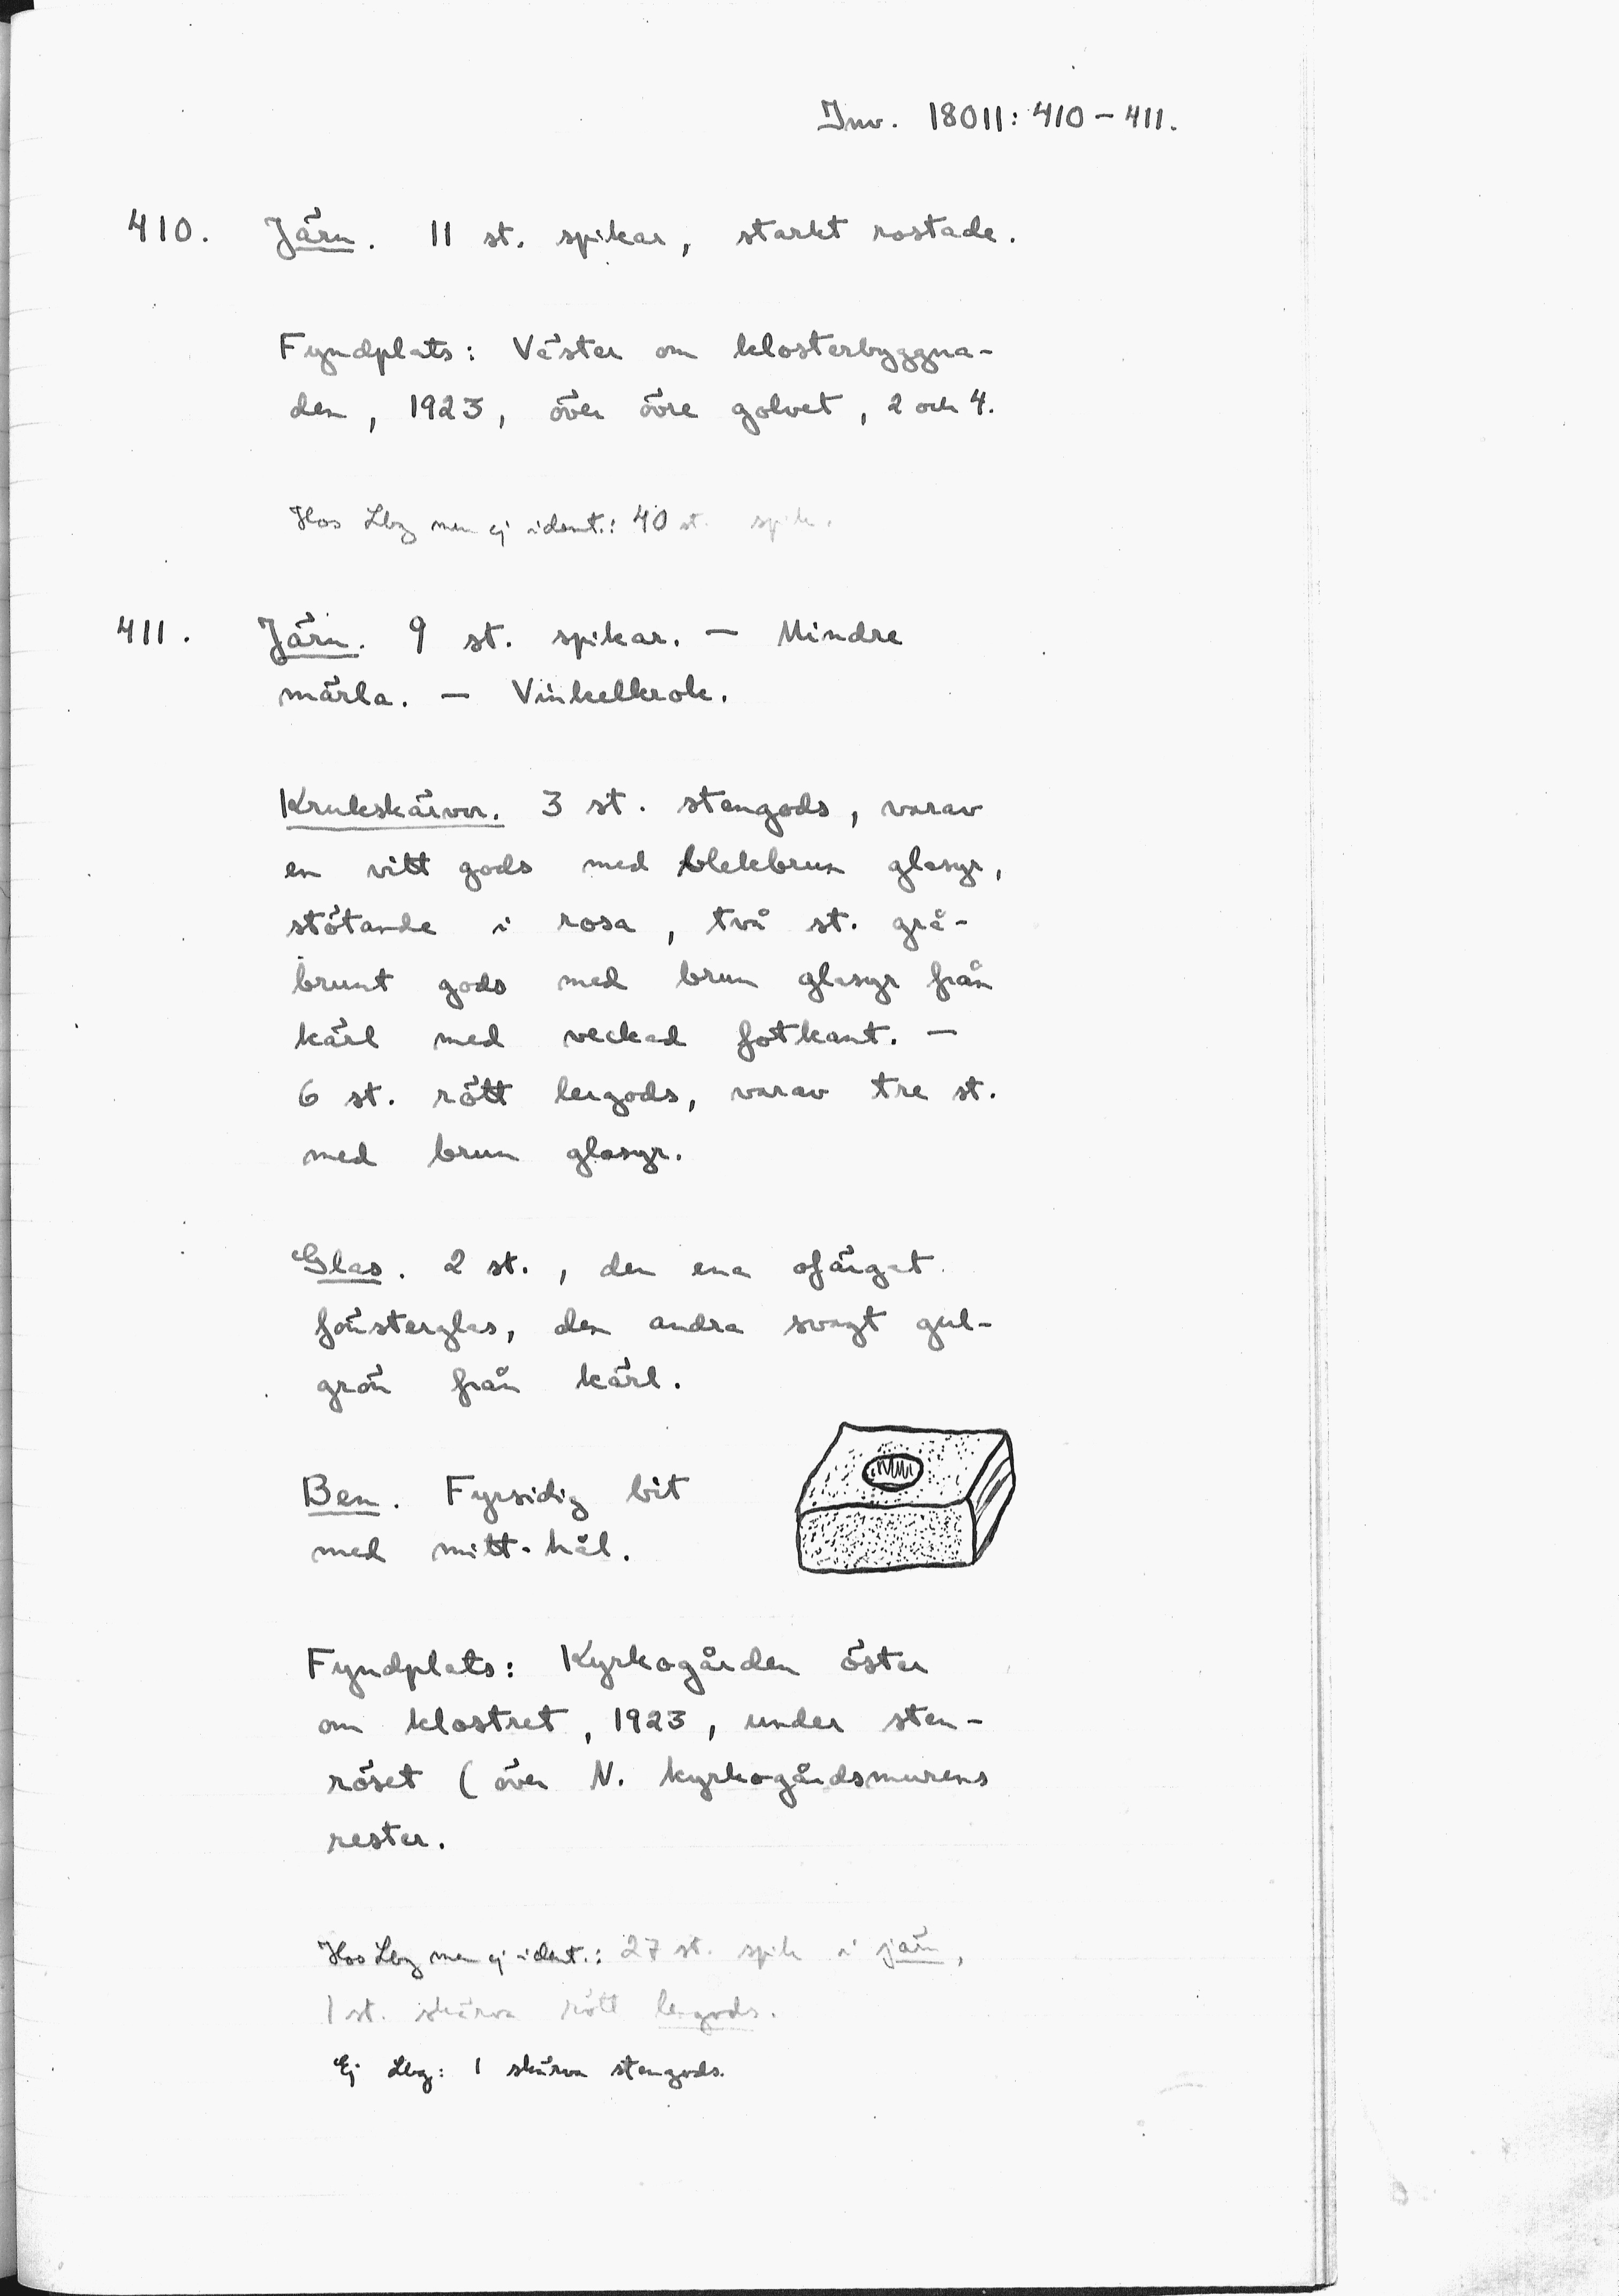 Inv. 18011: 410 – 411.
410. Järn. 11 st. spikar, starkt rostade.
Fyndplats: Väster om klosterbyggna-
den, 1923, över övre golvet, 2 och 4.
Hos Lbg men ej ident.: 40 st. spik.
411. Järn. 9 st. spikar. – Mindre
märla. – Vinkelkrok.
Krukskärvor. 3 st. stengods, varav
en vitt gods med blekbrun glasyr,
stötande i rosa, två st. grå-
brunt gods med brun glasyr från
kärl med veckad fotkant. –
6 st. rött lergods, varav tre st.
med brun glasyr.
Glas. 2 st., den ena ofärgat
fönsterglas, den andra svagt gul-
grön från kärl.
Ben. Fyrsidig bit
med mitt-hål.
Fyndplats: Kyrkogården öster
om klostret, 1923, under sten-
röset (över N. kyrkogårdsmurens
rester.
Hos Lbg men ej ident.: 27 st. spik i järn,
1 st. skärva rött lergods.
Ej Lbg: 1 skärva stengods.